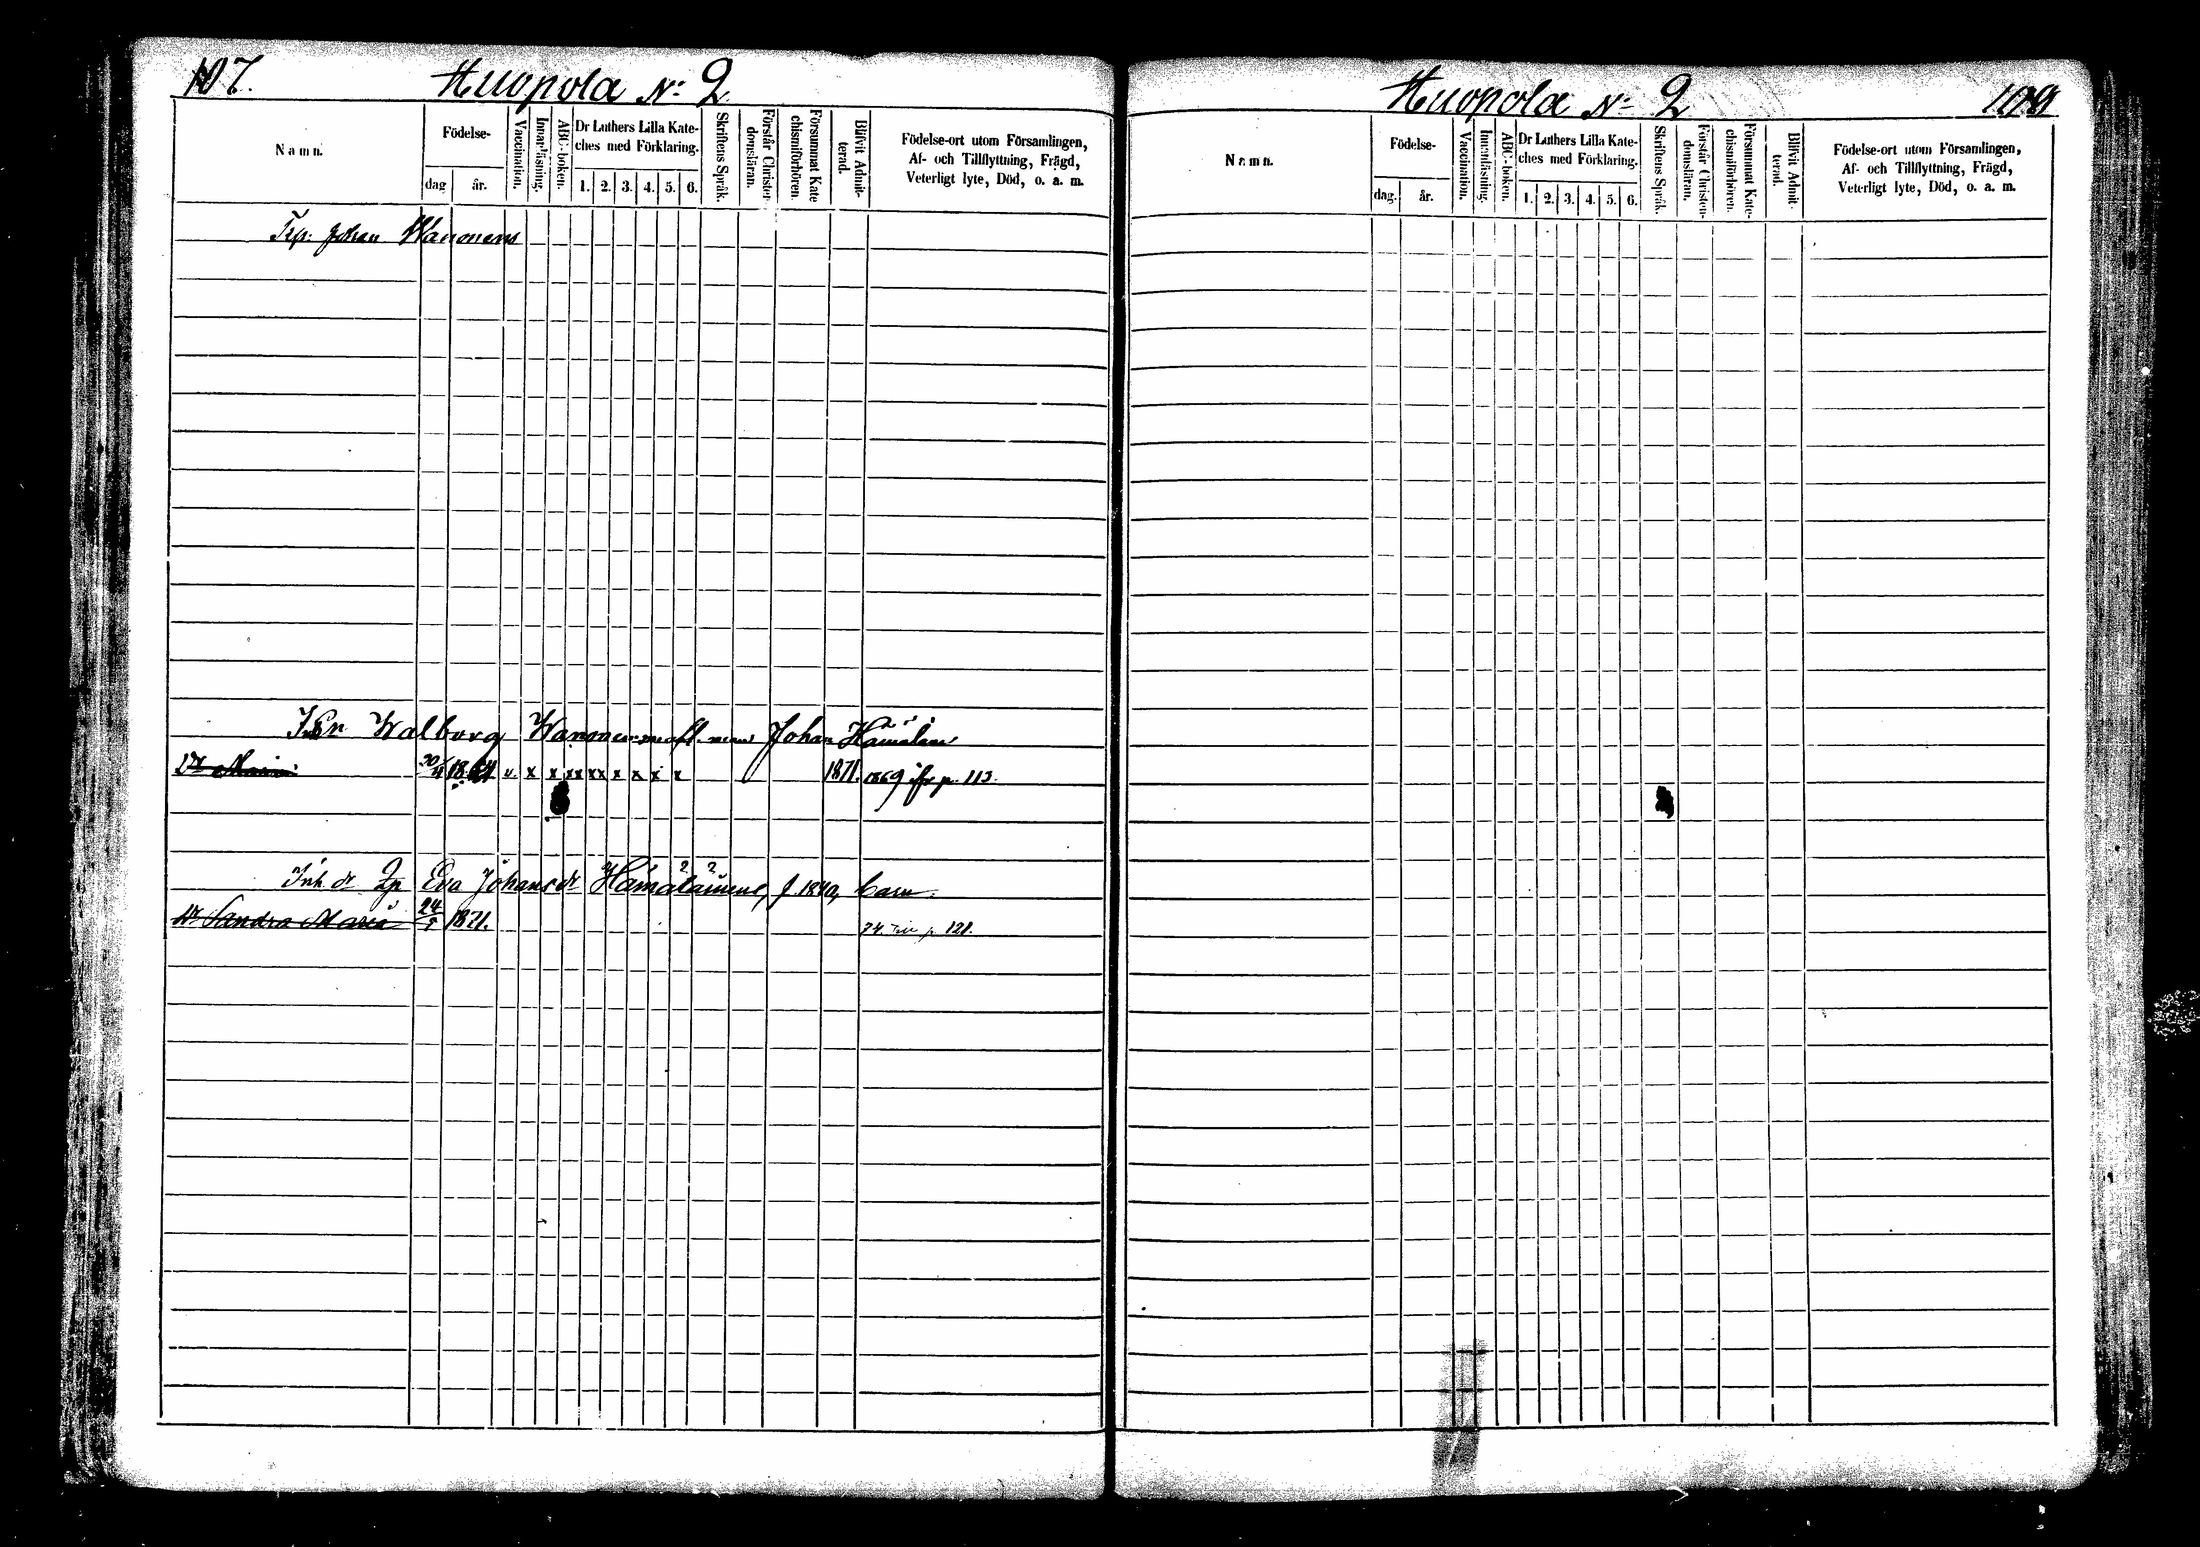 107.
Huopola No 2
Namn.
Födelse-
dag
år.
Vaccination.
Innanläsning.
ABC-boken.
Dr Luthers Lilla Kate-
ches med Förklaring.
1. 2. 3. 4. 5. 6.
Skriftens Språk.
Förstår Christen-
domsläran.
Försummat Kate
chismiförhören.
Blifvit Admit-
terad.
Födelse-ort utom Församlingen,
Af- och Tillflyttning, Frägd,
Veterligt lyte, Död, o. a. m.
Johan Wanonens
Walborg Johan
Dr Maria 1871. 1869 p. 113.
Inh. dr Eva Johansdr f 1840, barn.
Dr Sandra Maria 24 1871. 74 p. 121.
Huopola No 2
Namn.
Födelse-
dag.
år.
Vaccination.
Innanläsning.
ABC-boken.
Dr Luthers Lilla Kate-
ches med Förklaring.
1. 2. 3. 4. 5. 6.
Skriftens Språk.
Förstår Christen-
domsläran.
Försummat Kate-
chismiförhören.
Blifvit Admit-
terad.
Födelse-ort utom Församlingen,
Af- och Tillflyttning, Frägd,
Veterligt lyte, Död, o. a. m.